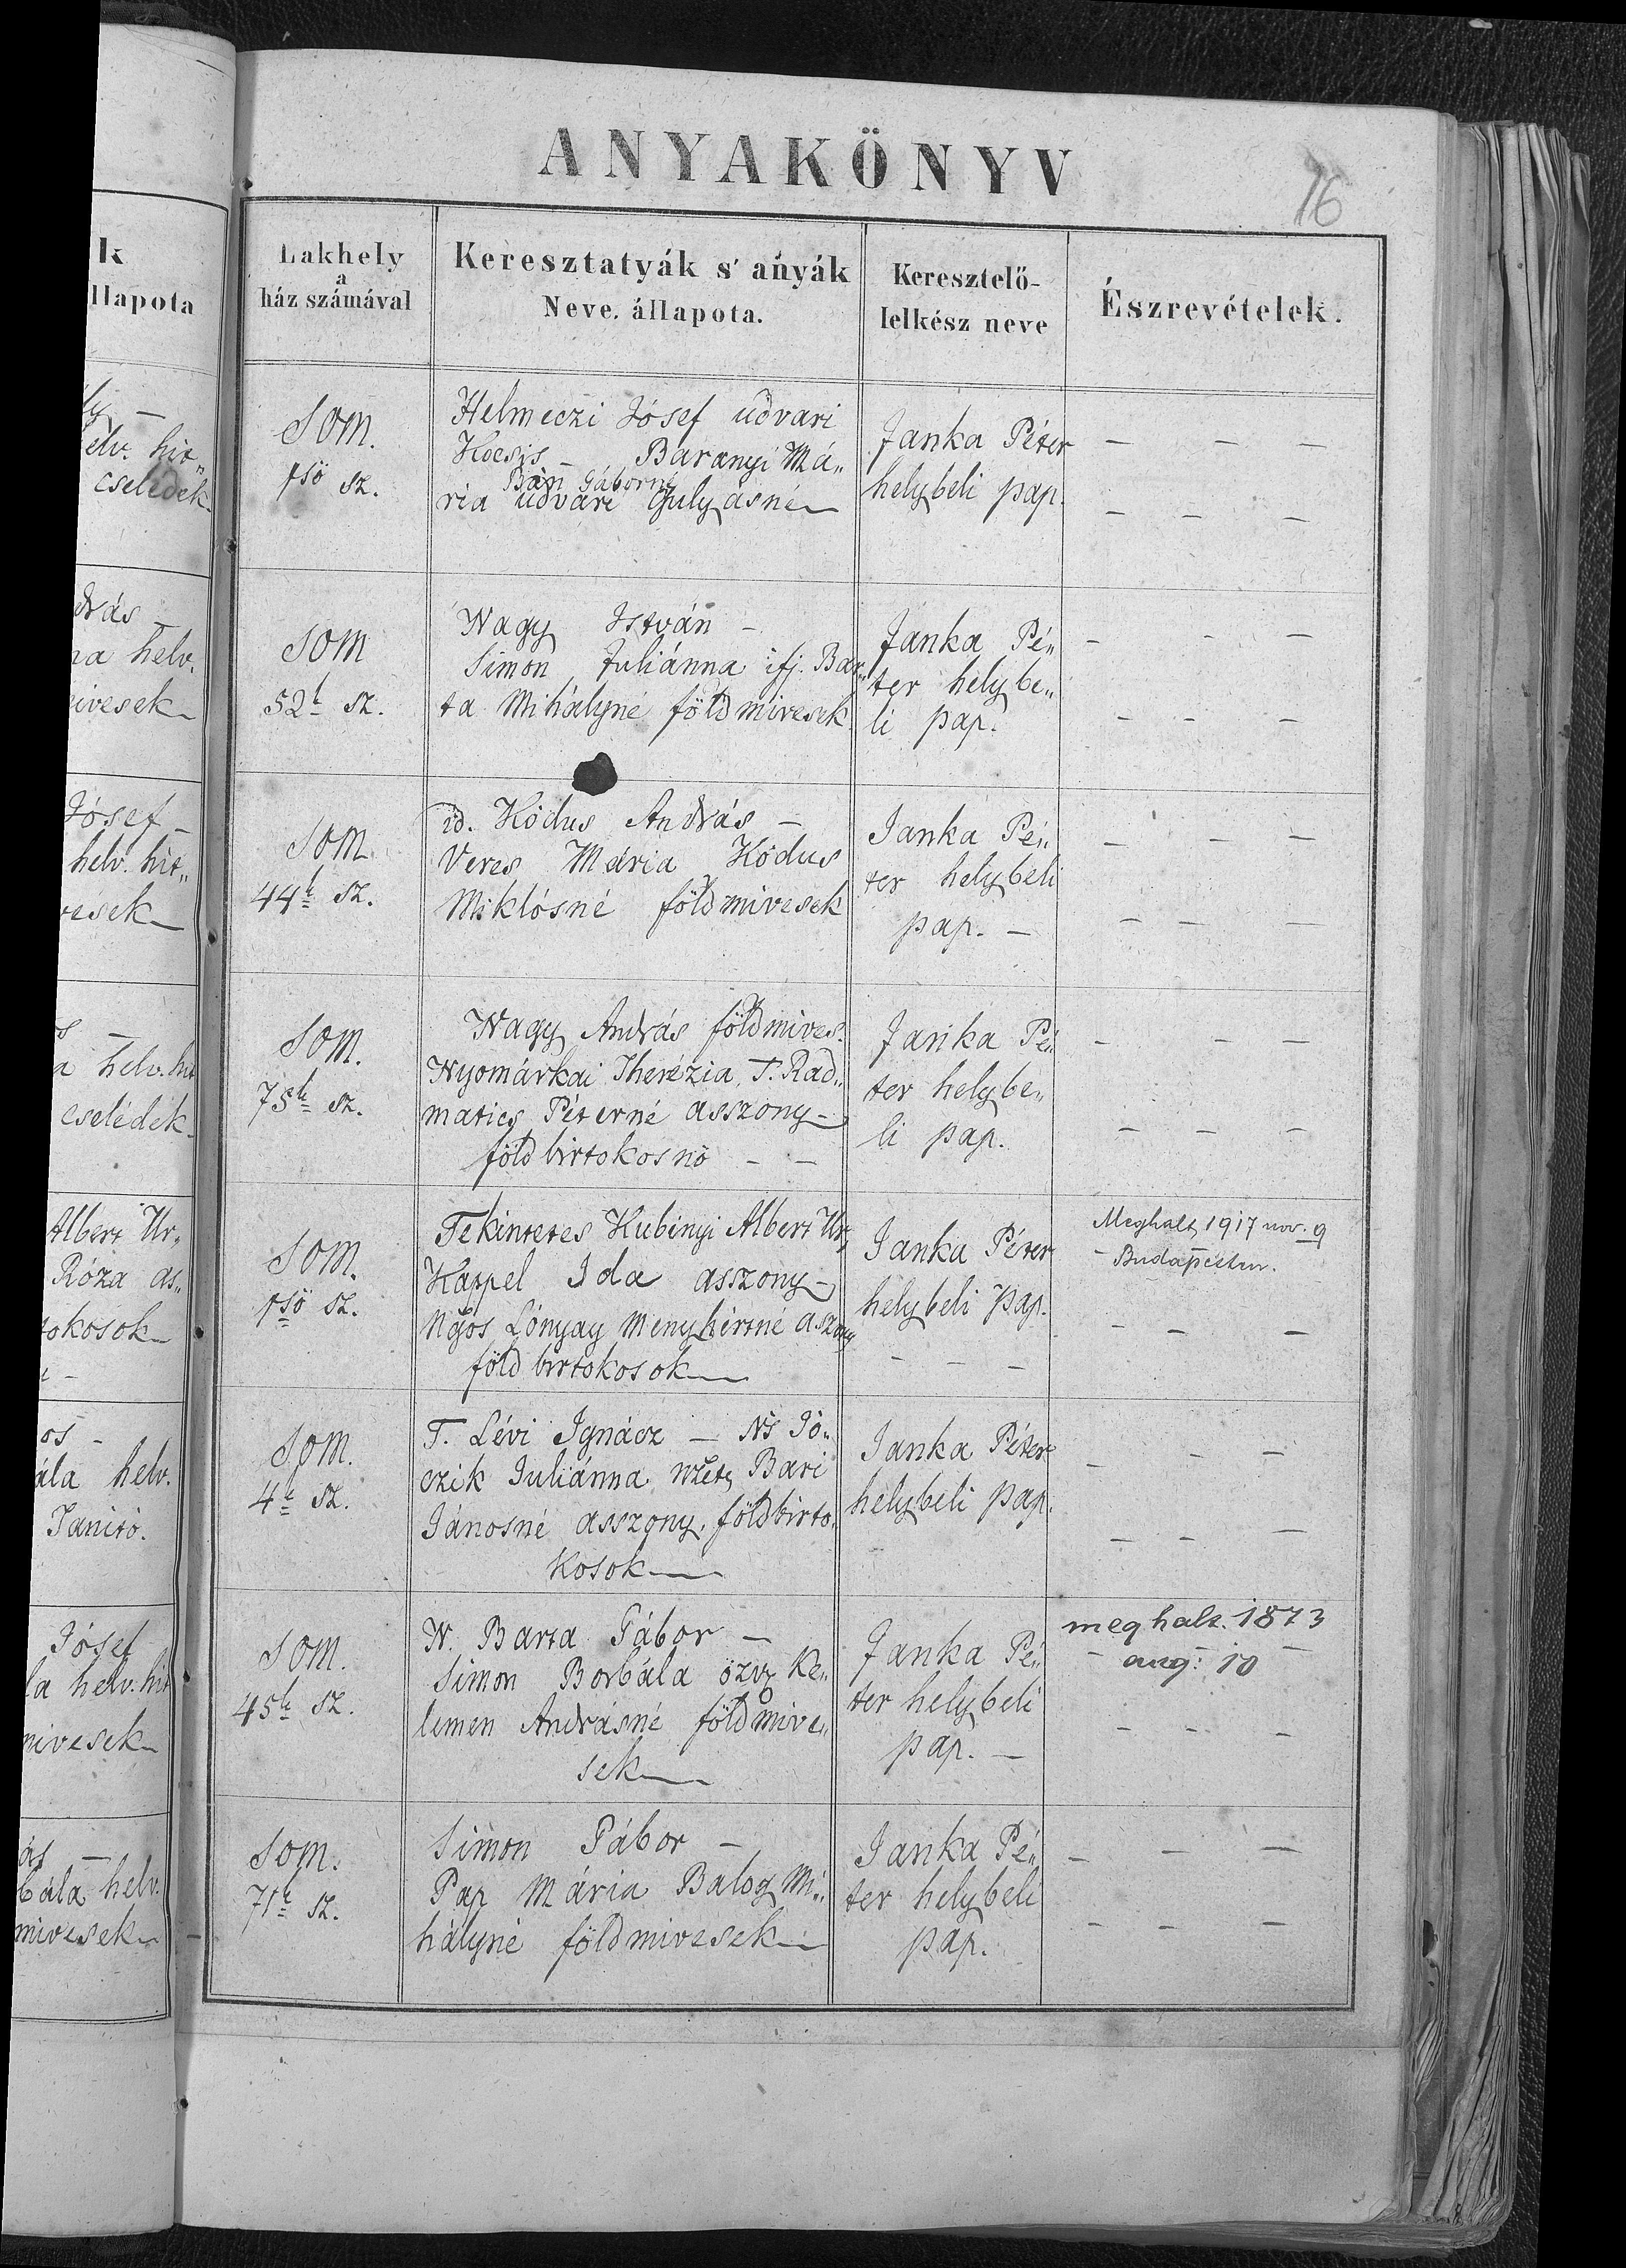 ANYAKÖNYV
16
k
llapota
Lakhely
a
ház számával
Keresztatyák s' anyák
Neve, állapota.
Keresztelő-
lelkész neve
Észrevételek.
elv. hit„
cselédek
Som.
1ső sz.
Helmeczi Jósef udvari
Kocsis – Baranyi Má„
Bán Gáborné
ria udvari Gulyásné
Janka Péter
helybeli pap.
drás –
na helv.
mivesek
Som
52k sz.
Nagy István –
Simon Juliánna ifj. Bar„
ta Mihályné földmivesek
Janka Pé„
ter helybe„
li pap.
Jósef –
helv. hit„
vesek
Som.
44k sz.
id. Ködus András –
Veres Mária Ködus
Miklósné földmivesek
Janka Pé„
ter helybeli
pap. –
a helv. hit
cselédek
Som.
75k sz.
Nagy András földmives.
Nyomárkai Therézia, T. Rad„
matics Péterné asszony –
földbirtokosnö – –
Janka Pé„
ter helybe„
li pap.
Albert Ur„
Róza as„
tokosok
Som.
1ső sz.
Tekintetes Kubinyi Albert Ur,
Kappel Ida asszony –
Ngos Lónyay Menyhértné aszony
földbirtokosok
Janka Péter
helybeli pap.
– – –
Meghalt, 1917 nov. 9
Budapesten.
os –
ála helv.
Tanító.
Som.
4k sz.
T. Lévi Ignácz – Ns Jö„
czik Juliánna nzts Bari
Jánosné asszony. földbirto„
kosok
Janka Péter
helybeli pap.
Jósef
la helv. hit
mivesek
Som.
45k sz.
N. Barta Gábor –
Simon Borbála özv. Ke„
lemen Andrásné földmive„
sek
Janka Pé„
ter helybeli
pap. –
meghalt. 1873
aug: 10
ás –
bála helv.
mivesek
Som.
71k sz.
Simon Gábor –
Pap Mária Balog Mi„
hályné földmivesek
Janka Pé„
ter helybeli
pap.